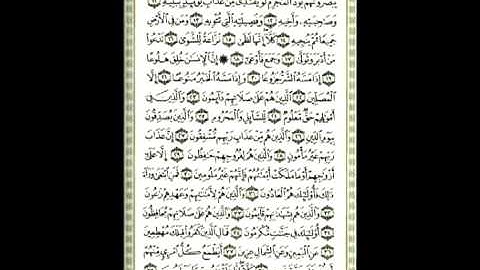 يُبَصَّرُونَهُمْ يَوَدُّ ٱلْمُجْرِمُ لَوْ يَفْتَدِى مِنْ عَذَابِ يَوْمِئِذٍۭ بِبَنِيهِ ١١
وَصَٰحِبَتِهِۦ وَأَخِيهِ ١٢ وَفَصِيلَتِهِ ٱلَّتِى تُـْٔوِيهِ ١٣ وَمَن فِى ٱلْأَرْضِ
جَمِيعًا ثُمَّ يُنجِيهِ ١٤ كَلَّآ إِنَّهَا لَظَىٰ ١٥ نَزَّاعَةً لِّلشَّوَىٰ ١٦ تَدْعُوا۟
مَنْ أَدْبَرَ وَتَوَلَّىٰ ١٧ وَجَمَعَ فَأَوْعَىٰٓ ١٨ ۞ إِنَّ ٱلْإِنسَٰنَ خُلِقَ هَلُوعًا
١٩ إِذَا مَسَّهُ ٱلشَّرُّ جَزُوعًا ٢٠ وَإِذَا مَسَّهُ ٱلْخَيْرُ مَنُوعًا ٢١ إِلَّا
ٱلْمُصَلِّينَ ٢٢ ٱلَّذِينَ هُمْ عَلَىٰ صَلَاتِهِمْ دَآئِمُونَ ٢٣ وَٱلَّذِينَ فِىٓ
أَمْوَٰلِهِمْ حَقٌّ مَّعْلُومٌ ٢٤ لِّلسَّآئِلِ وَٱلْمَحْرُومِ ٢٥ وَٱلَّذِينَ يُصَدِّقُونَ
بِيَوْمِ ٱلدِّينِ ٢٦ وَٱلَّذِينَ هُم مِّنْ عَذَابِ رَبِّهِم مُّشْفِقُونَ ٢٧ إِنَّ عَذَابَ
رَبِّهِمْ غَيْرُ مَأْمُونٍ ٢٨ وَٱلَّذِينَ هُمْ لِفُرُوجِهِمْ حَٰفِظُونَ ٢٩ إِلَّا عَلَىٰٓ
أَزْوَٰجِهِمْ أَوْ مَا مَلَكَتْ أَيْمَٰنُهُمْ فَإِنَّهُمْ غَيْرُ مَلُومِينَ ٣٠ فَمَنِ ٱبْتَغَىٰ وَرَآءَ
ذَٰلِكَ فَأُو۟لَٰٓئِكَ هُمُ ٱلْعَادُونَ ٣١ وَٱلَّذِينَ هُمْ لِأَمَٰنَٰتِهِمْ وَعَهْدِهِمْ رَٰعُونَ
٣٢ وَٱلَّذِينَ هُم بِشَهَٰدَٰتِهِمْ قَآئِمُونَ ٣٣ وَٱلَّذِينَ هُمْ عَلَىٰ صَلَاتِهِمْ يُحَافِظُونَ
٣٤ أُو۟لَٰٓئِكَ فِى جَنَّٰتٍ مُّكْرَمُونَ ٣٥ فَمَالِ ٱلَّذِينَ كَفَرُوا۟ قِبَلَكَ مُهْطِعِينَ
٣٦ عَنِ ٱلْيَمِينِ وَعَنِ ٱلشِّمَالِ عِزِينَ ٣٧ أَيَطْمَعُ كُلُّ ٱمْرِئٍ مِّنْهُمْ